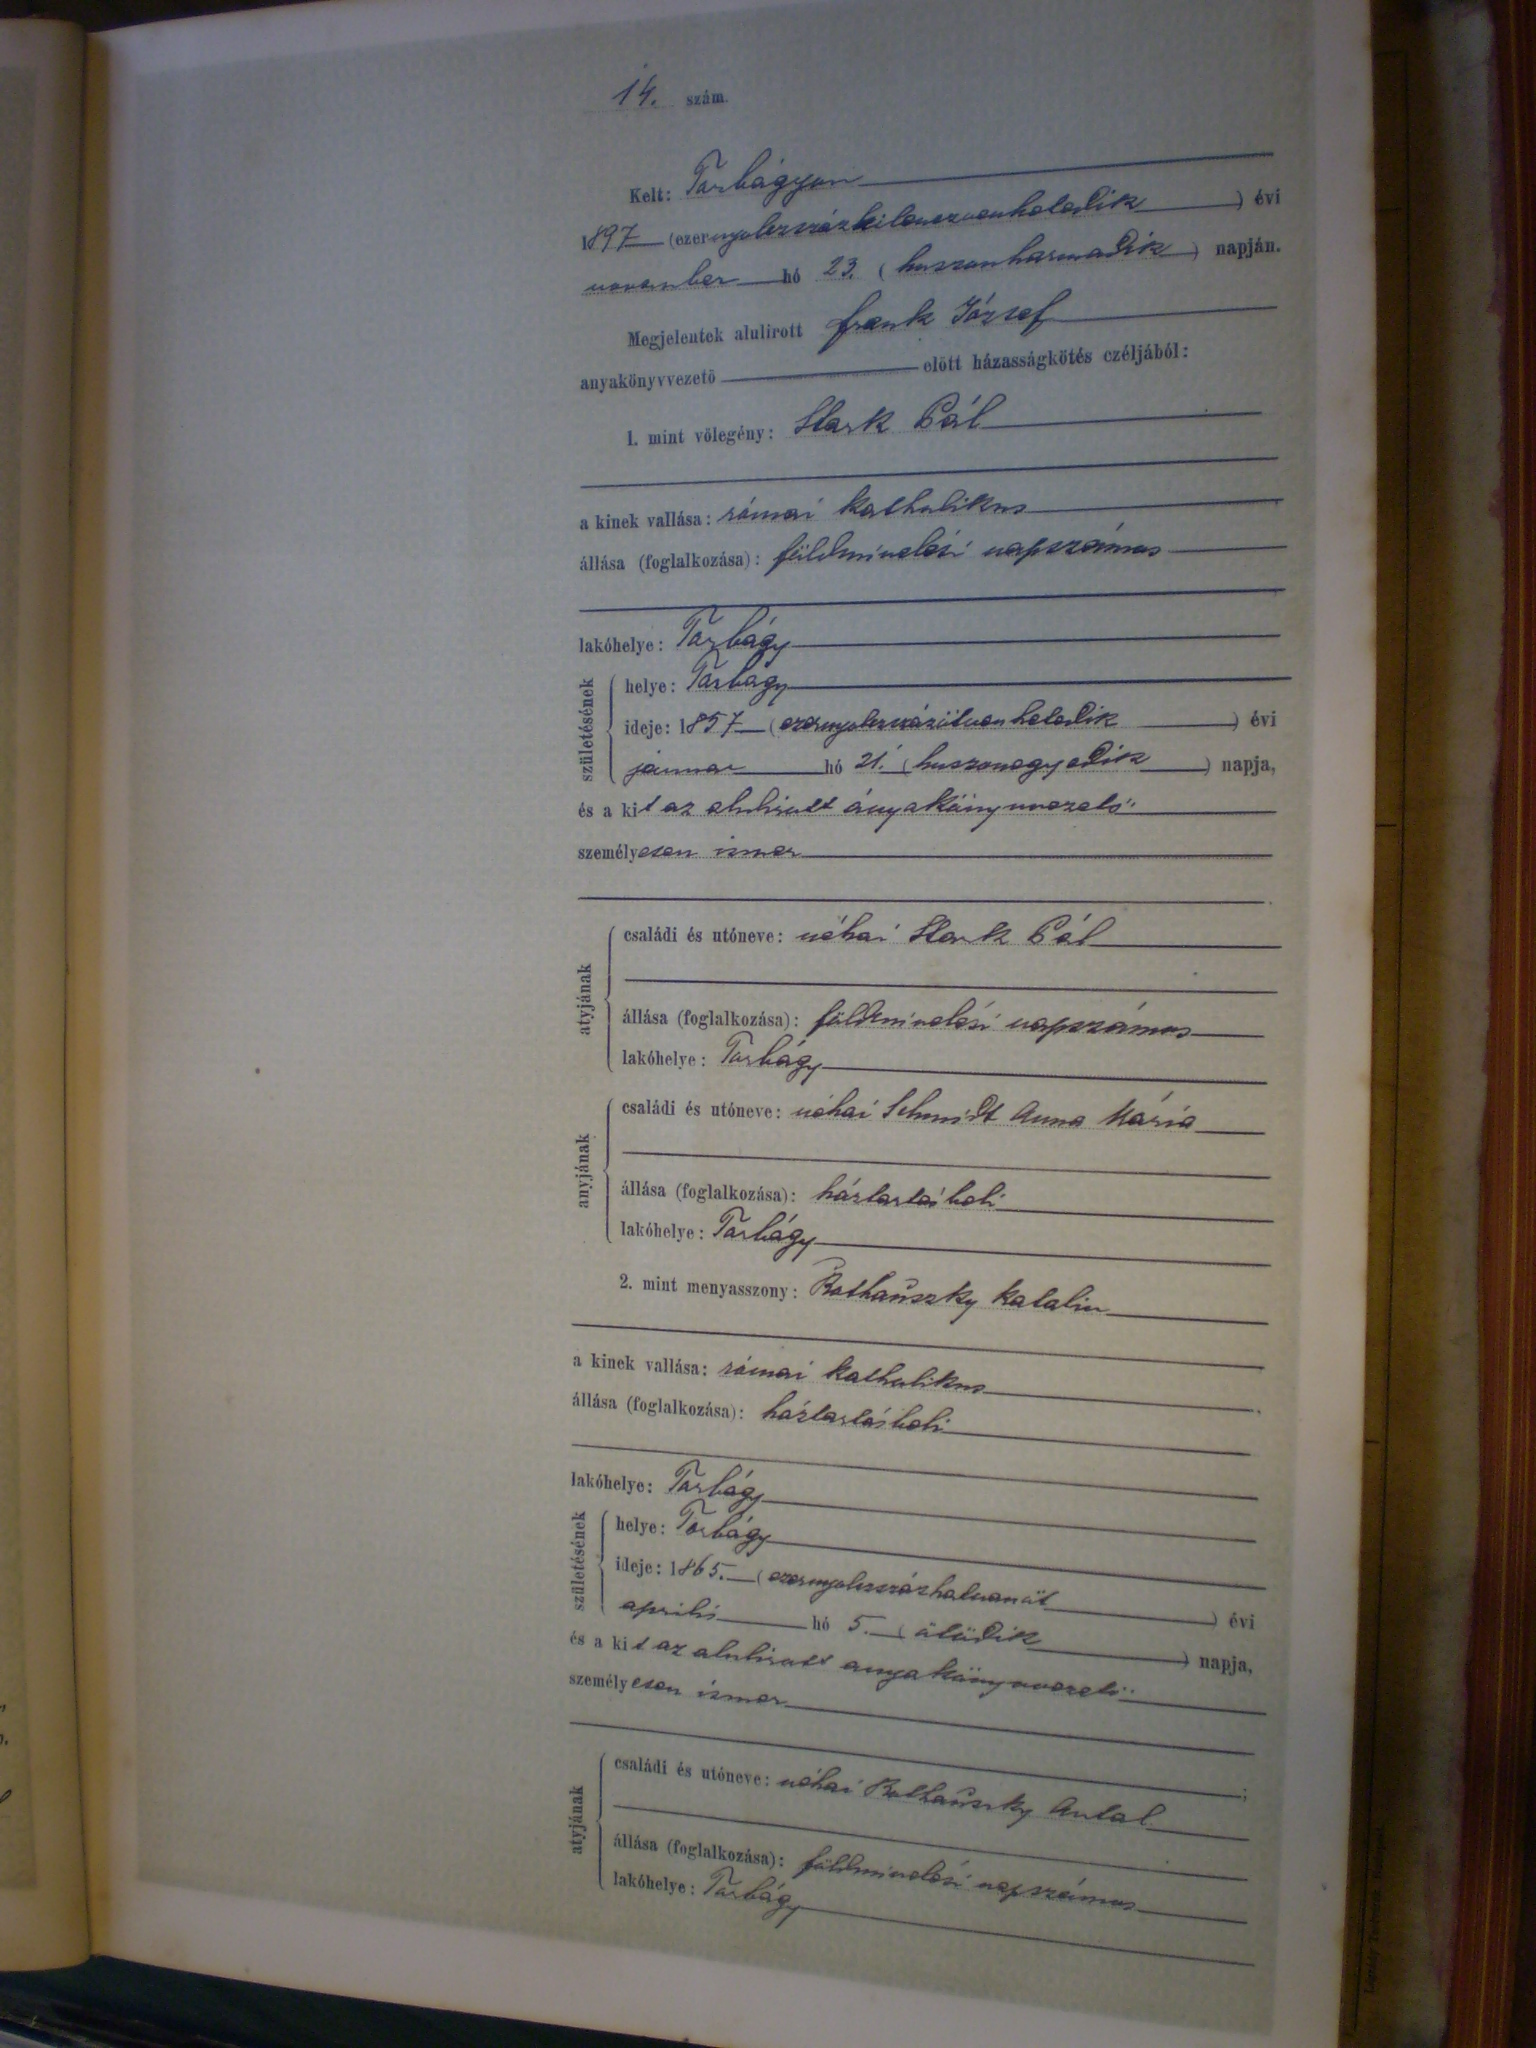 14. szám.
Kelt: Torbágyon
1897 (ezernyolczszázkilenczvenhetedik) évi
november hó 23. (huszonharmadik) napján.
Megjelentek alulirott Frank József
anyakönyvvezető előtt házasságkötés czéljából:
1. mint vőlegény: Stark Pál
a kinek vallása: római katholikus
állása (foglalkozása): földmivelési napszámos
lakóhelye: Torbágy
születésének
helye: Torbágy
ideje: 1857 (ezernyolczszázötvenhetedik) évi
január hó 21. (huszonegyedik) napja,
és a kit az alulirott anyakönyvvezető
személyesen ismer
atyjának
családi és utóneve: néhai Stark Pál
állása (foglalkozása): földmivelési napszámos
lakóhelye: Torbágy
anyjának
családi és utóneve: néhai Schmidt Anna Mária
állása (foglalkozása): háztartásbeli
lakóhelye: Torbágy
2. mint menyasszony: Rothauszky Katalin
a kinek vallása: római katholikus
állása (foglalkozása): háztartásbeli
lakóhelye: Torbágy
születésének
helye: Torbágy
ideje: 1865. (ezernyolczszázhatvanöt) évi
április hó 5. (ötödik) napja,
és a kit az alulirott anyakönyvvezető
személyesen ismer
atyjának
családi és utóneve: néhai Rothauszky Antal
állása (foglalkozása): földmivelési napszámos
lakóhelye: Torbágy